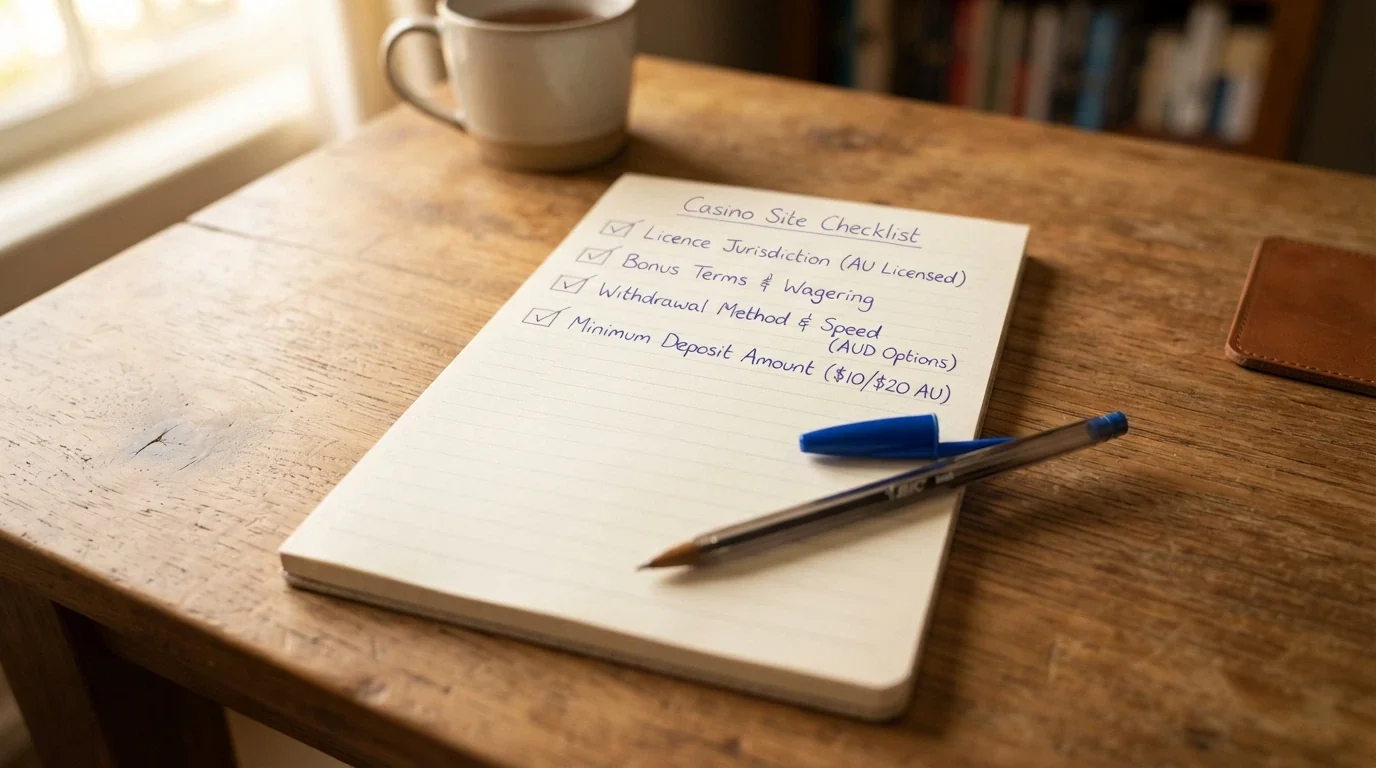 Casino Site Checklist
Licence Jurisdiction (AU Licensed)
Bonus Terms & Wagering
Withdrawal Method & Speed
(AUD Options)
Minimum Deposit Amount ($10/$20 AU)